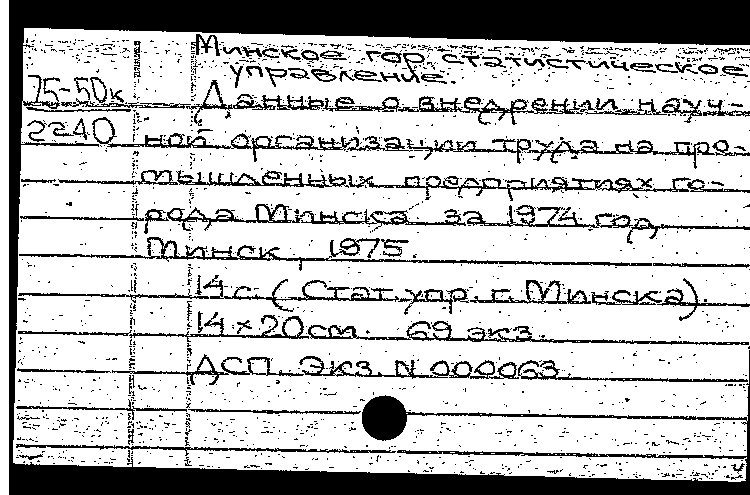 Минское гор. статистическое
управление.
75-50к
Данные о внедрении науч-
2240
ной организации труда на про-
мышленных предприятиях го-
рода Минска за 1974 год,
Минск, 1975.
14 с. (Стат. упр. г. Минска).
14×20 см. 69 экз.
ДСП. Экз. N 000063.